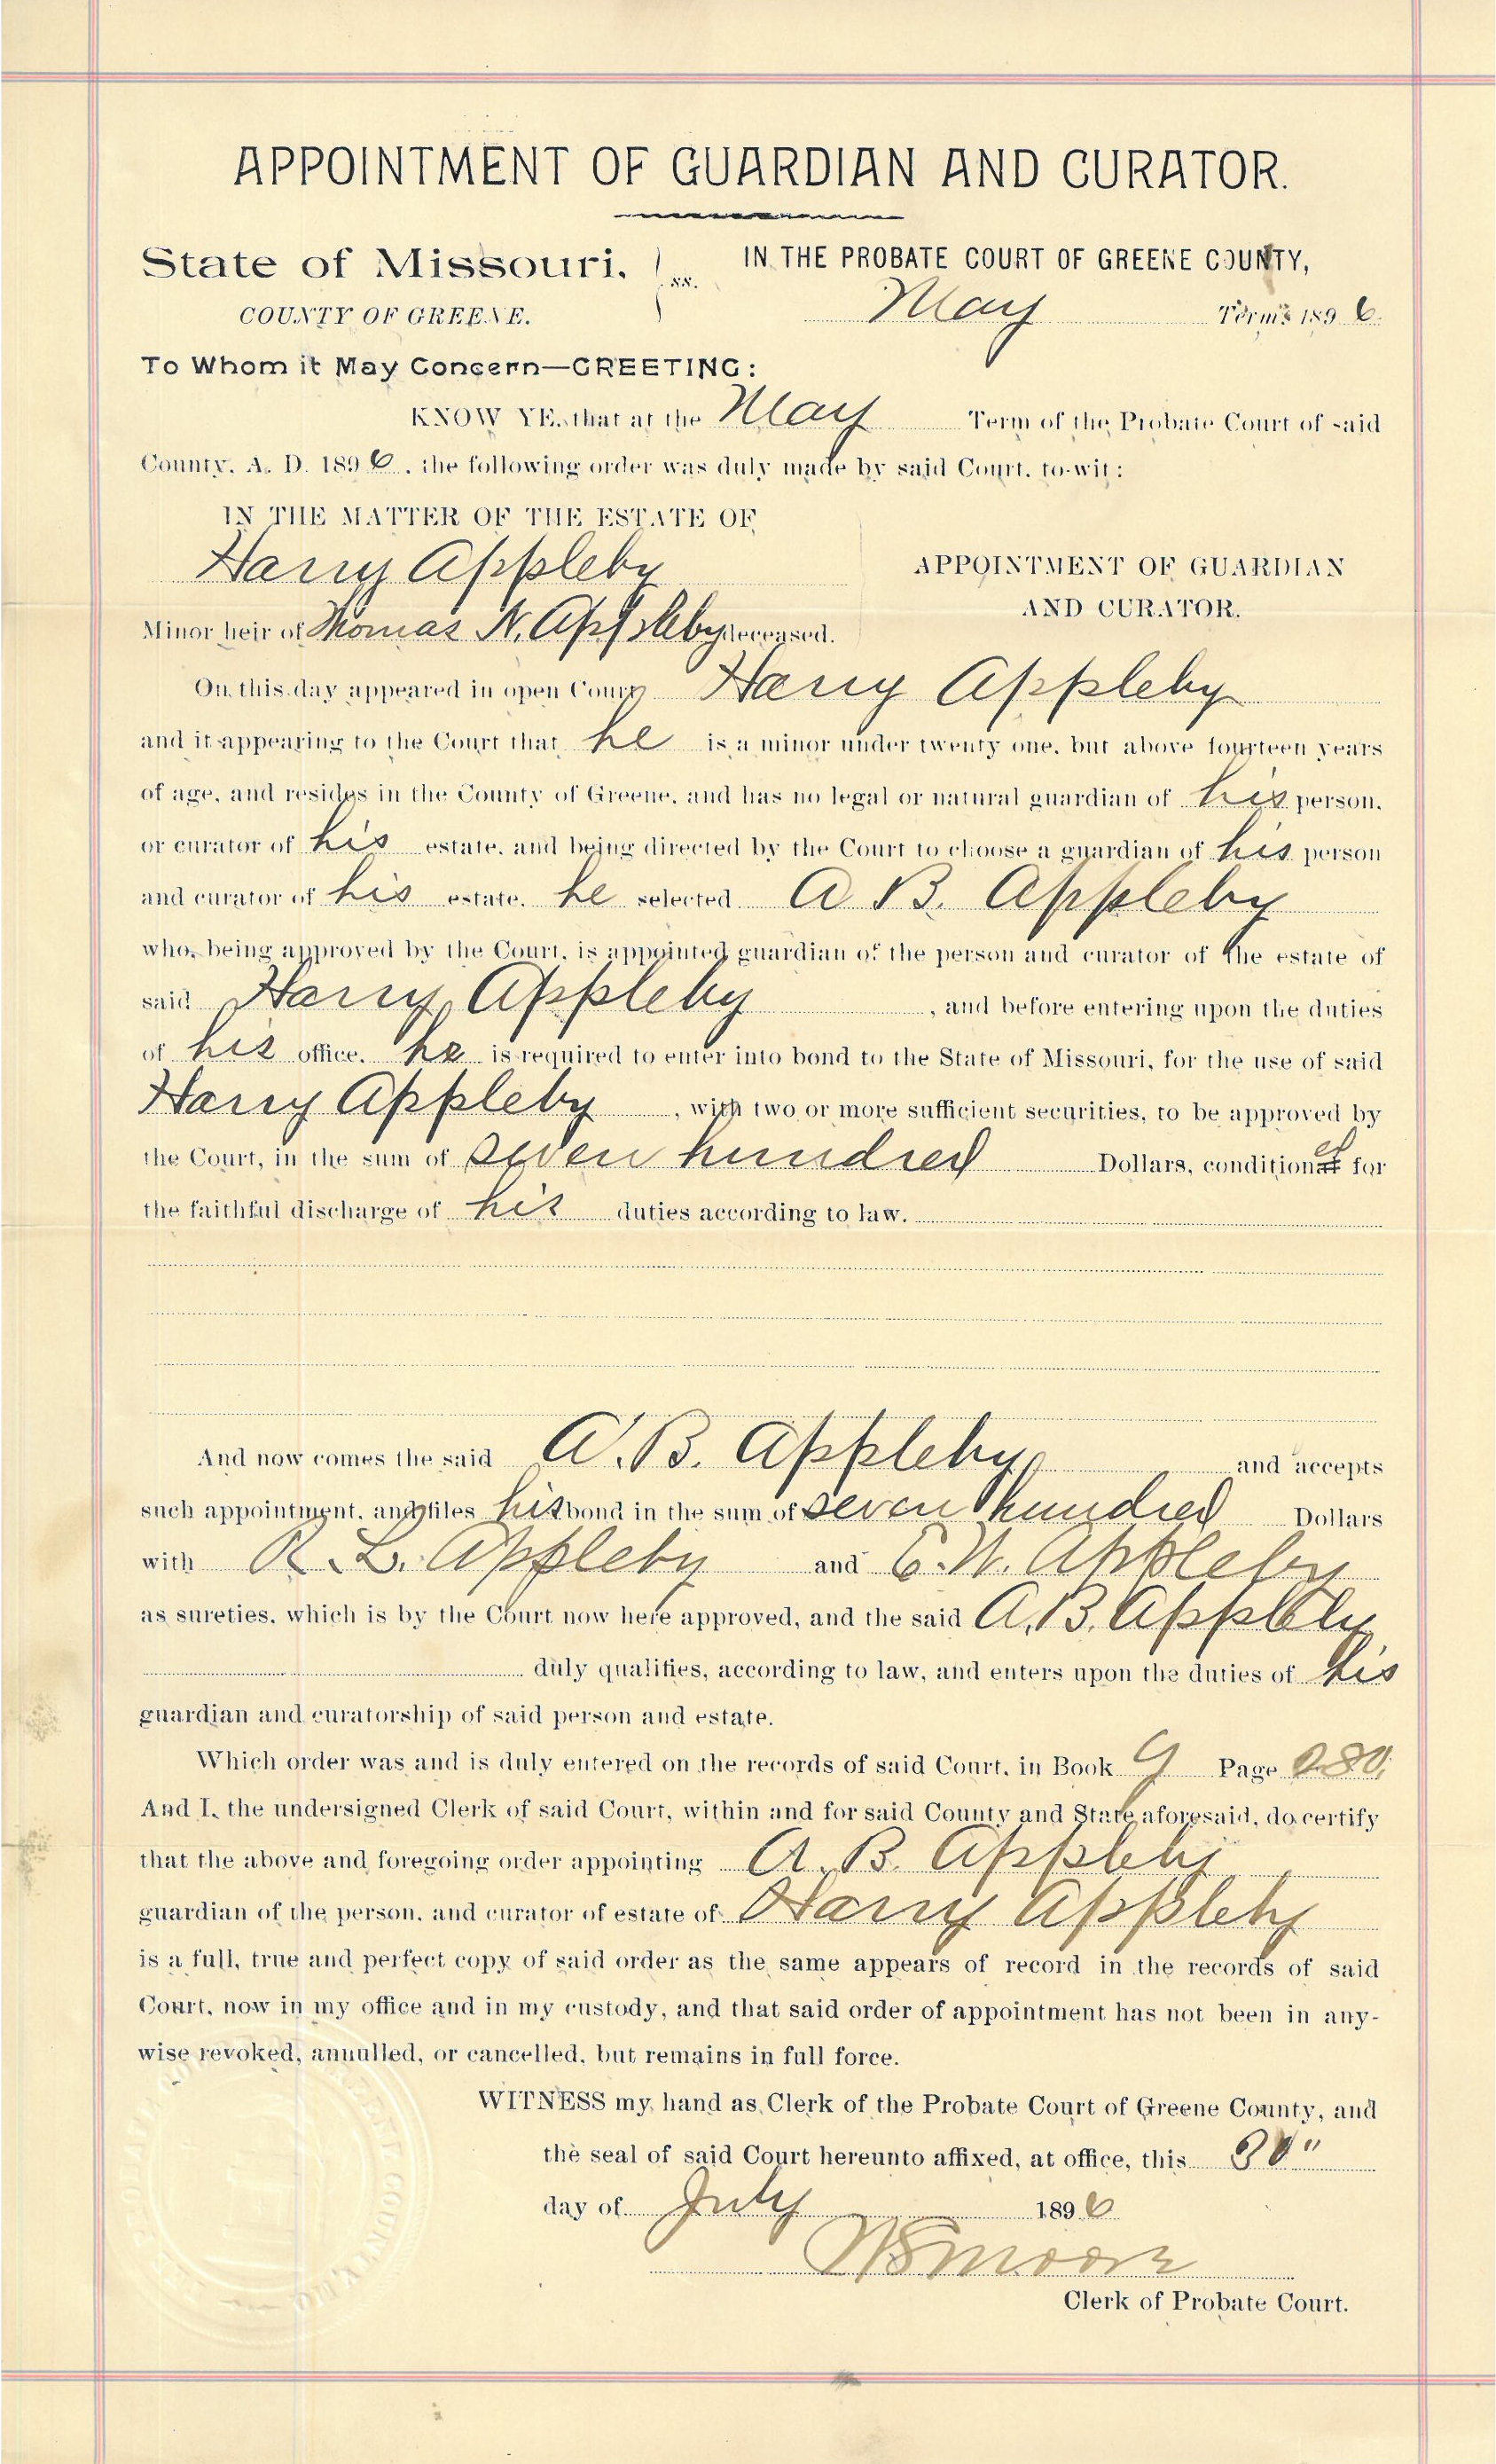 APPOINTMENT OF GUARDIAN AND CURATOR.
State of Missouri, ss. IN THE PROBATE COURT OF GREENE COUNTY,
COUNTY OF GREENE. May Term, 1896.
To Whom it May Concern—GREETING:
KNOW YE, that at the May Term of the Probate Court of said
County, A. D. 1896, the following order was duly made by said Court, to-wit:
IN THE MATTER OF THE ESTATE OF
Harry Appleby APPOINTMENT OF GUARDIAN
AND CURATOR.
Minor heir of Thomas N. Appleby deceased.
On this day appeared in open Court Harry Appleby
and it appearing to the Court that he is a minor under twenty one, but above fourteen years
of age, and resides in the County of Greene, and has no legal or natural guardian of his person,
or curator of his estate, and being directed by the Court to choose a guardian of his person
and curator of his estate, he selected A B. Appleby
who, being approved by the Court, is appointed guardian of the person and curator of the estate of
said Harry Appleby, and before entering upon the duties
of his office, he is required to enter into bond to the State of Missouri, for the use of said
Harry Appleby, with two or more sufficient securities, to be approved by
the Court, in the sum of seven hundred Dollars, conditioned for
the faithful discharge of his duties according to law.
And now comes the said A. B. Appleby and accepts
such appointment, and files his bond in the sum of seven hundred Dollars
with R. L. Appleby and E. W. Appleby
as sureties, which is by the Court now here approved, and the said A. B. Appleby
duly qualifies, according to law, and enters upon the duties of his
guardian and curatorship of said person and estate.
Which order was and is duly entered on the records of said Court, in Book Page 280,
And I, the undersigned Clerk of said Court, within and for said County and State aforesaid, do certify
that the above and foregoing order appointing A. B. Appleby
guardian of the person, and curator of estate of Harry Appleby
is a full, true and perfect copy of said order as the same appears of record in the records of said
Court, now in my office and in my custody, and that said order of appointment has not been in any-
wise revoked, annulled, or cancelled, but remains in full force.
WITNESS my hand as Clerk of the Probate Court of Greene County, and
the seal of said Court hereunto affixed, at office, this
day of July 1896
Moore
Clerk of Probate Court.